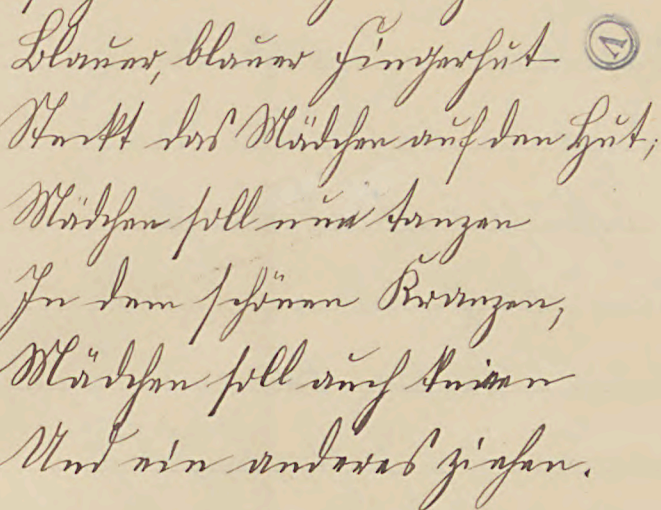 Blauer, blauer Fingerhut
Steckt das Mädchen auf den Hut;
Mädchen soll nun tanzen
In dem schönen Kranzen,
Mädchen soll auch knieen
Und ein anderes ziehen.